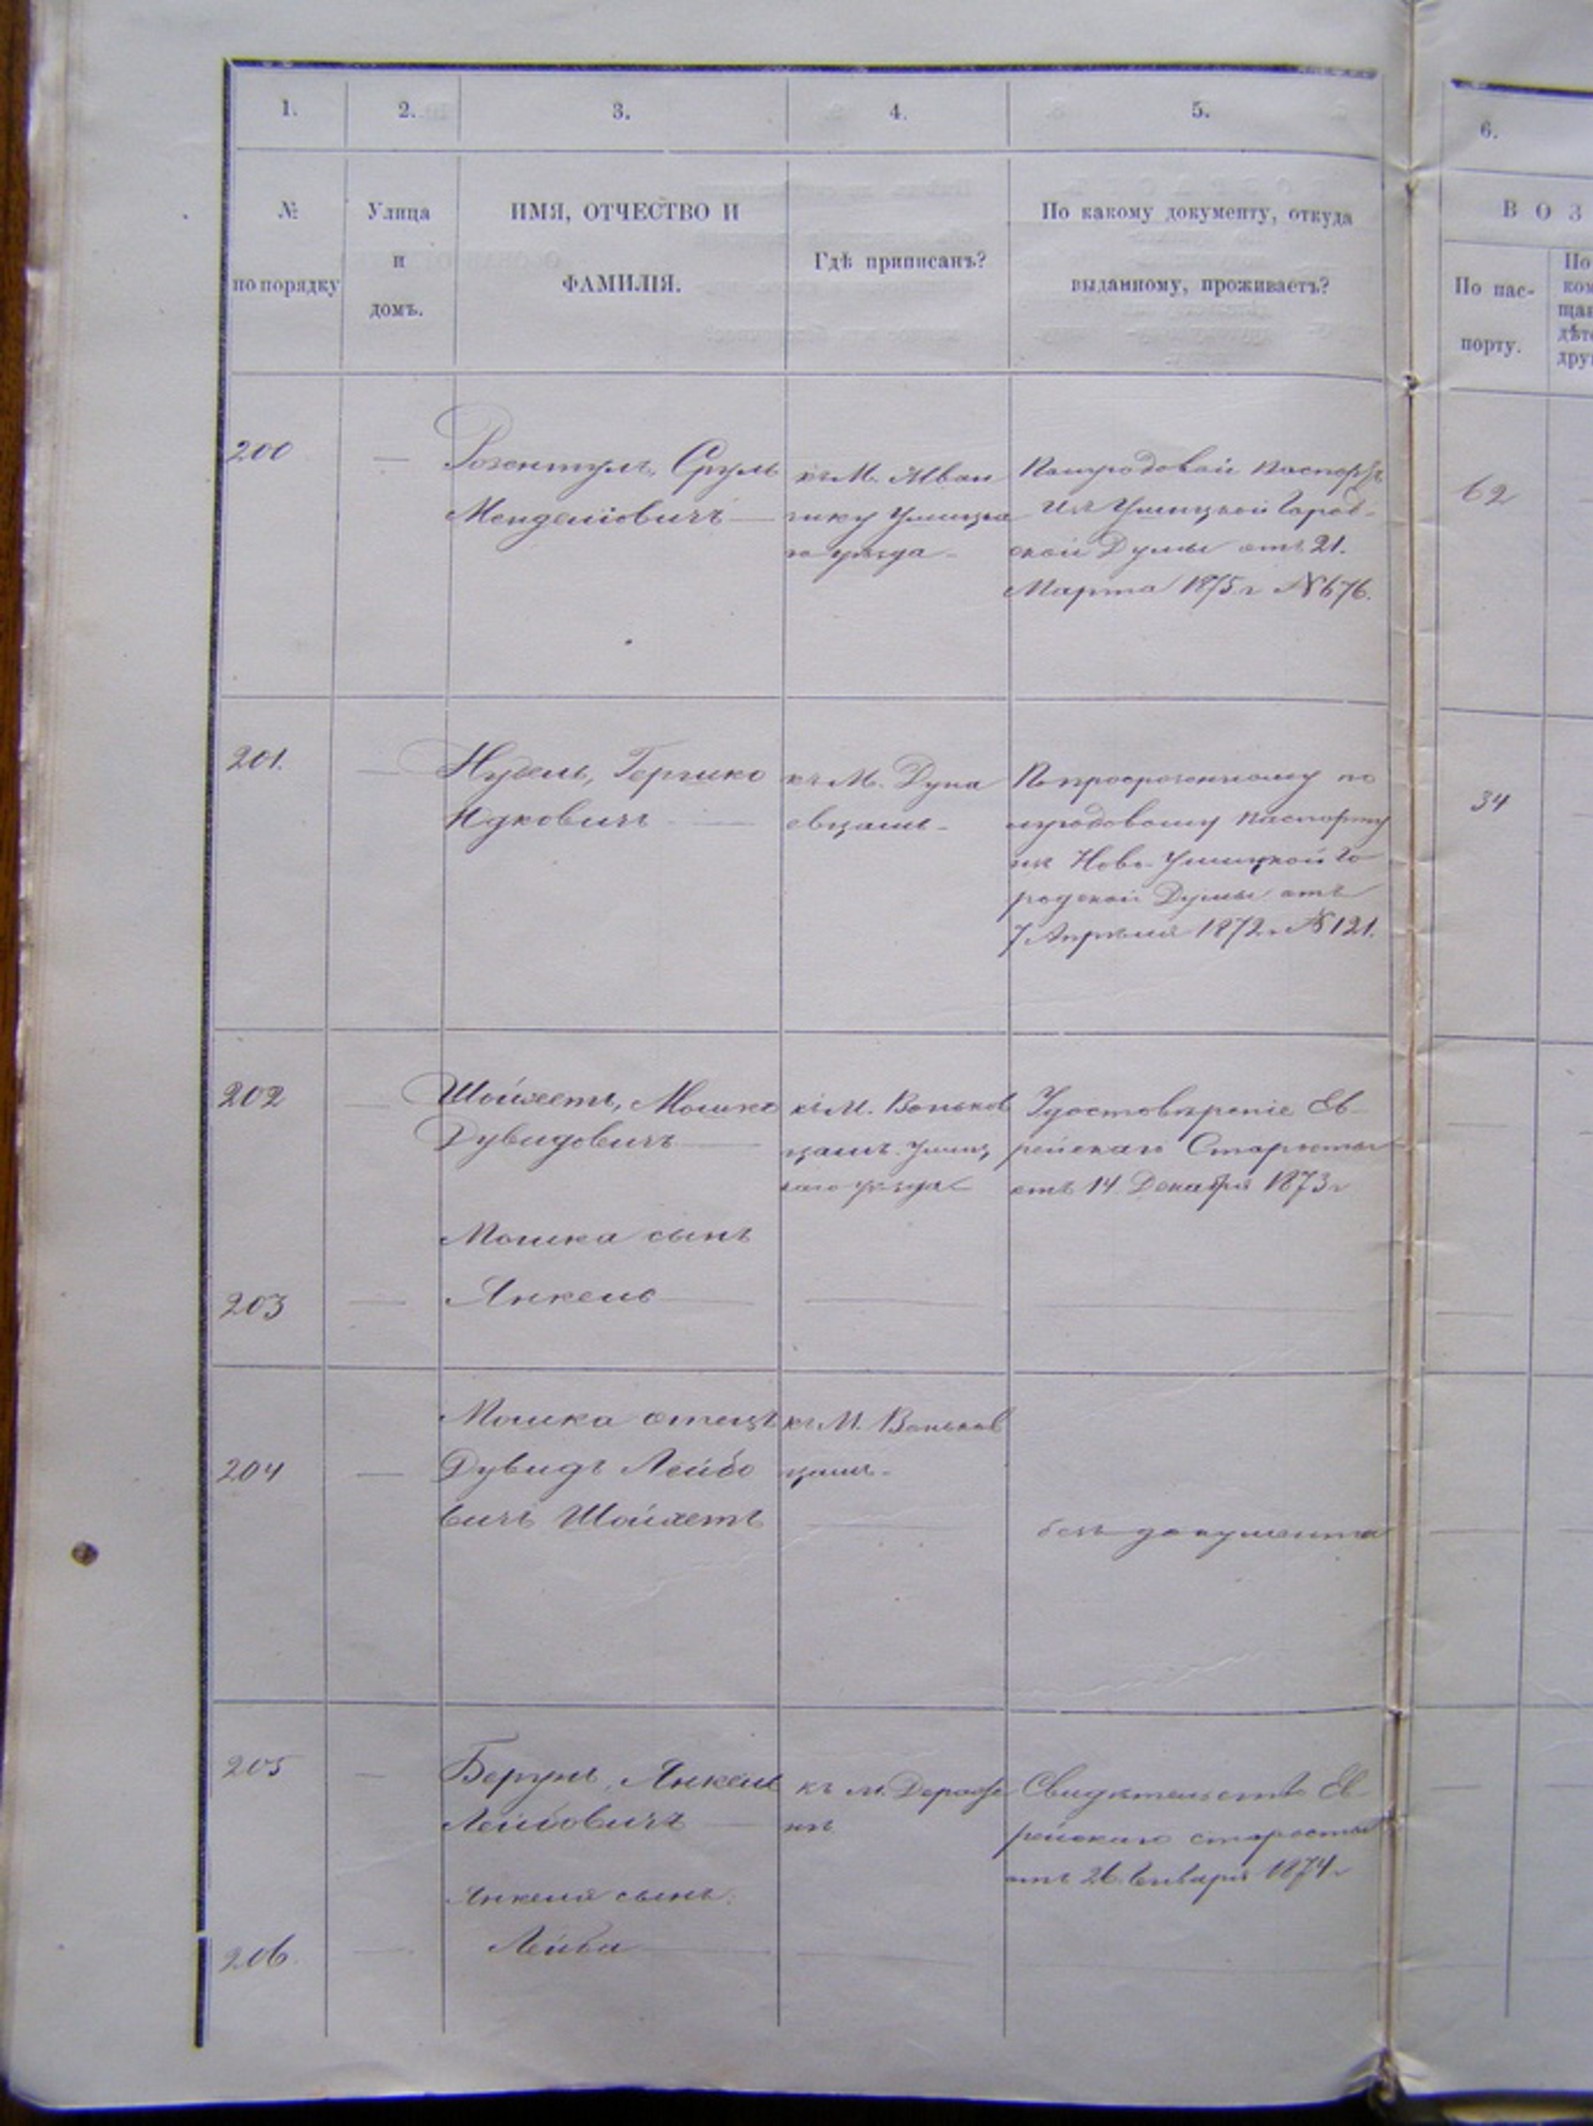 1.
2.
3.
4.
5.
6.
№
по порядку
Улица
и
домъ.
ИМЯ, ОТЧЕСТВО И
ФАМИЛІЯ.
Гдѣ приписанъ?
По какому документу, откуда
выданному, проживаетъ?
В О З
По пас-
порту.
По
ком
щан
дѣте
друг
200
—
Розентулъ, Сруль
Менделiовичъ —
къ М. Иван
чику Ушицка
го уѣзда -
Полугодовой паспортъ
изъ Ушицкой Город-
ской Думы отъ 21.
Марта 1875 г. № 676.
62
201.
—
Нудель, Гершко
Юдковичъ —
къ М. Дуна
евцамъ -
По просроченному по
лугодовому паспорту
изъ Ново-Ушицкой Го
родской Думы отъ
7 Апрѣля 1872 г. № 121.
34
202
—
Шойхетъ, Мошко
Дувидовичъ —
къ М. Воньков
цамъ. Ушиц
каго уѣзда
Удостовѣреніе Ев-
рейскаго Старосты
отъ 14 Декабря 1873 г
Мошка сынъ
203
—
Янкель —
Мошка отецъ
204
—
Дувидъ Лейбо
вичъ Шойхетъ
къ М. Воньков
цамъ -
безъ документа
205
—
Берунъ, Янкель
Лейбовичъ —
къ м. Деражн
нѣ
Свидѣтельство Ев-
рейскаго старосты
отъ 26 Января 1874 г
Янкеля сынъ.
206.
—
Лейба —